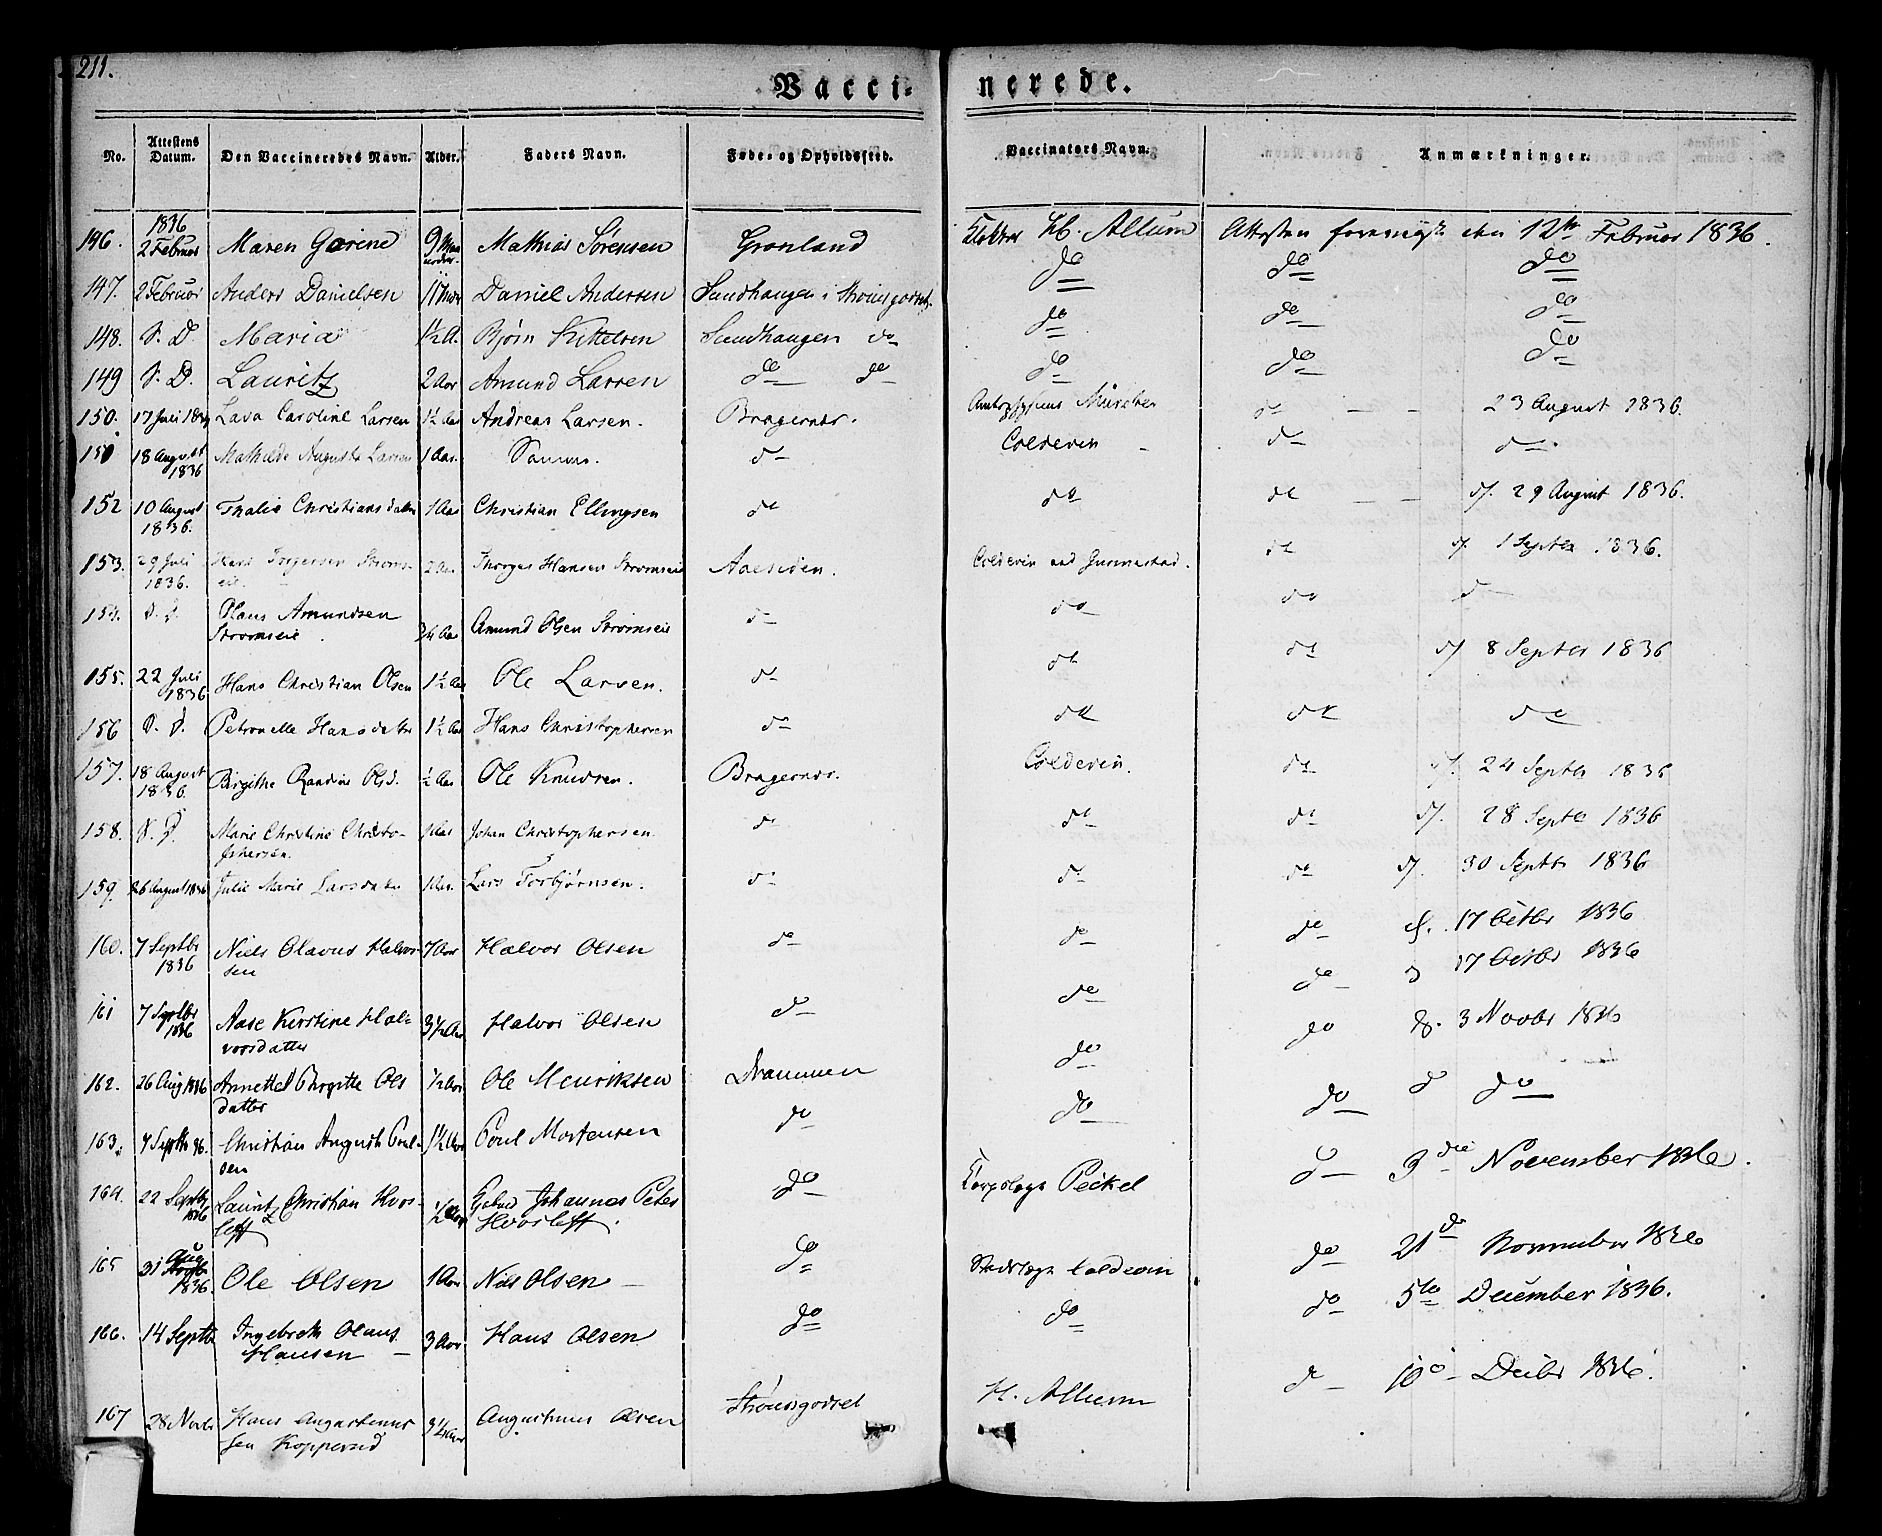 211.
Vacci- nerede.
No. Attestens Datum. Den Vaccineredes Navn. Alder. Faders Navn. Føde- og Opholdssted. Vaccinators Navn. Anmærkninger.
1836
146. 2 Februar Maren Gorine 9 Mathias Sörensen Gronland Klokker Hb. Allum Attesten 12te Februar 1836.
147. 2 Februar Anders Danielsen 11 Daniel Andersen Sundhaugen i do do do
148. S. D. Maria 1½ A. Bjørn Kittelsen Sundhaugen do do do do
149 S. D. Lauritz 2 Aar Amund Larsen do do do do do
150. 17 Juli Lava Caroline Larsen 1½ Aar Andreas Larsen. Bragernes. do 23 August 1836.
151 18 August 1836 Mathilde Augusta Larsen 1 Aar. Samme. do Coldevin do do
152 10 August 1836. Thalie Christiansdatter 1 Aar Christian Ellingsen do do do d. 29 August 1836.
153. 29 Juli 1836. Torgersen Stromseie. 2 Aar Thorger Hansen Stromseie Aaesiden. Coldevin do d. 1 Septbr 1836.
S. D. Hans Amundsen Stromseie ¾ Aar Amund Olsen Stromseie do do do do
155. 22 Juli 1836 Hans Christian Olsen 1½ Aar Ole Larsen. do do do d. 8 Septbr 1836
156 S. D. Petronelle Hansdatter 1½ Aar Hans Christophersen do do do do
157. 18 August 1836. Birgithe Randine Olsd. ½ Aar Ole Knudsen. Bragernes. Coldevin. do d. 24 Septbr 1836
158. S. D. Marie Christine Christophersen. 1 Aar Johan Christophersen. do do do d. 28 Septbr 1836
159. 26 August 1836 Julie Marie Larsdatter 1 Aar. Lars Torbjørnsen. do do do d. 30 Septbr 1836
160. 7 Septbr 1836 Niels Olavus Halvorsen 7 Aar Halvor Olsen do do do d. 17 Octbr 1836
do 17 Octbr 1836
161 7 Septbr 1836 Aase Kirstine Halvorsdatter 3½ Aar Halvor Olsen do do do d. 3 Novbr 1836
162. 26 Aug 1836 Annette Birgitte Olsdatter ½ Aar Ole Henriksen Drammen do do d do
163. 7 Septbr 36. Christian August Poulsen 1½ Aar Poul Mortensen do do do 3die November 1836.
164. 22 Septbr 1836 Lauritz Christian Hvosleff ½ Aar Johannes Peter Hvosleff. do Corpslæge Peckel do 21de November 1836
165 31 Aug 1836. Ole Olsen 1 Aar Nils Olsen do Stadslæge Coldevin do 5te December 1836.
166. 14 Septbr Ingebreth Olaus Hansen 3 Aar Hans Olsen do do do 10 Decbr 1836.
167 28 Novbr Hans Augustinussen Kopperud 3½ Aar Augustinus Olsen Strömsgodset H. Allum